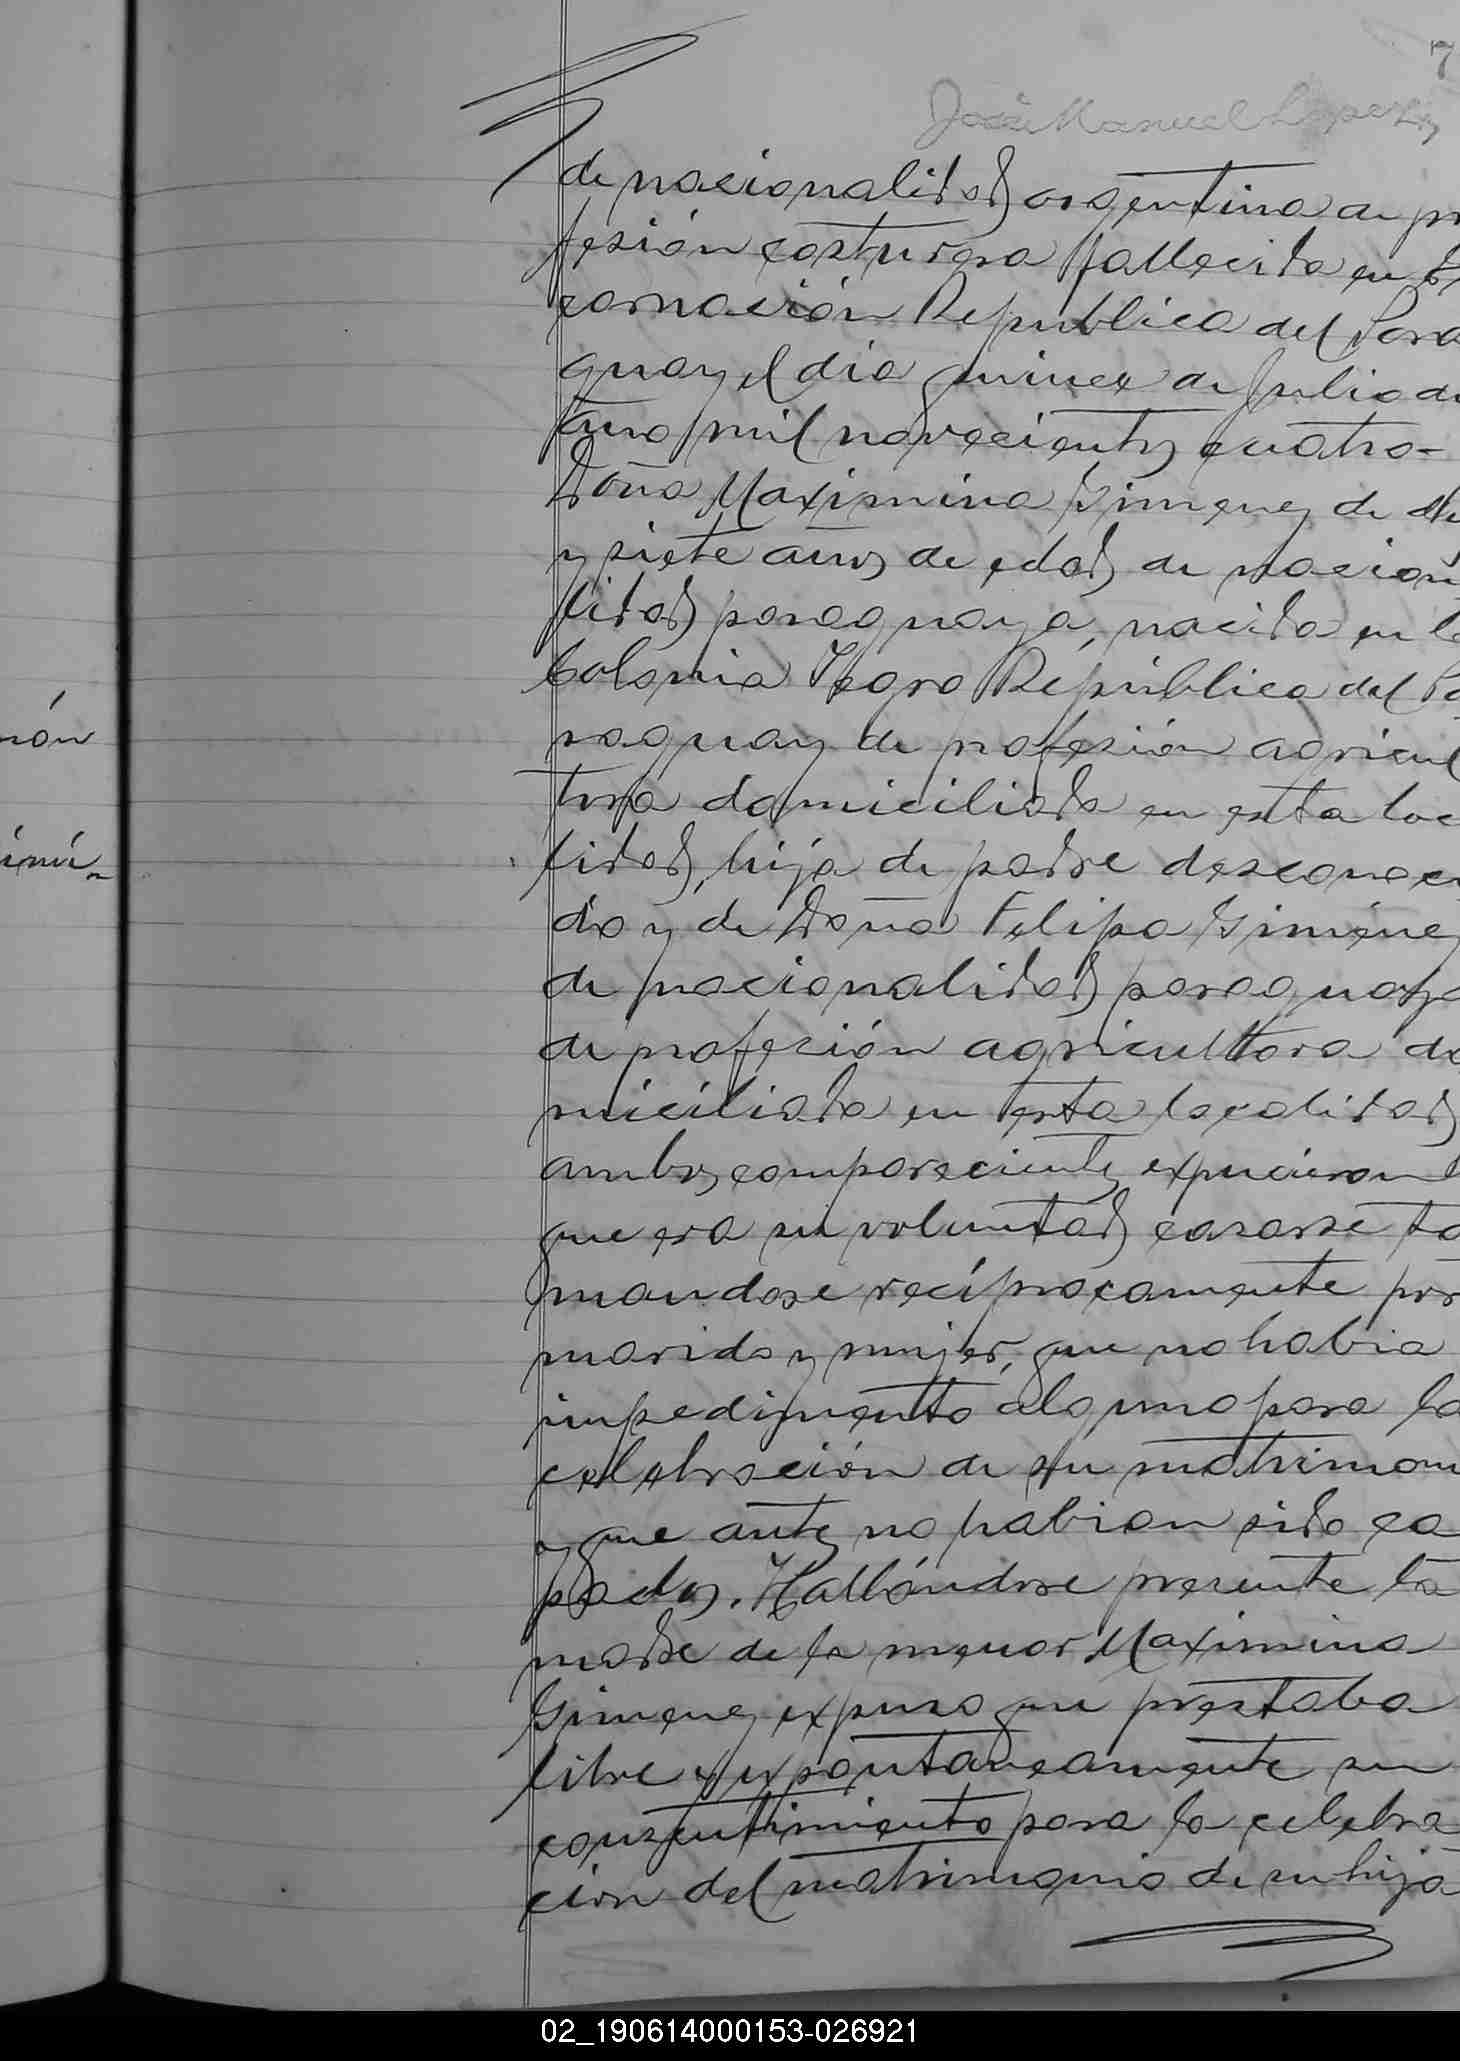 7
José Manuel Lopez
de nacionalidad argentina de pr
fesión costurera fallecida en
carnación Republica del Para
guay el dia quince de Julio de
año mil novecientos cuatro-
Doña Maximina Gimenez de
y siete años de edad, de nacion
lidad paraguaya, nacida en l
Colonia Yegro República del Pa
raguay de profesión agricul
tora domiciliada en esta loc
lidad, hija de padre desconoci
do y de Doña Felipa Giménez
de nacionalidad paraguaya
de profesión agricultora do
miciliada en esta localidad
ambos comparecientes expucieron
que era su voluntad casarse to
mandose recíprocamente por
marido y mujer, que no habia
impedimento alguno para la
celebración de su matrimoni
y que antes no habian sido ca
sados. Hallándose presente la
madre de la menor Maximina
Gimenez expuso que prestaba
libre y expontaneamente su
consentimiento para la celebra
cion del matrimonio de su hija
nón
iméi
02_190614000153-026921